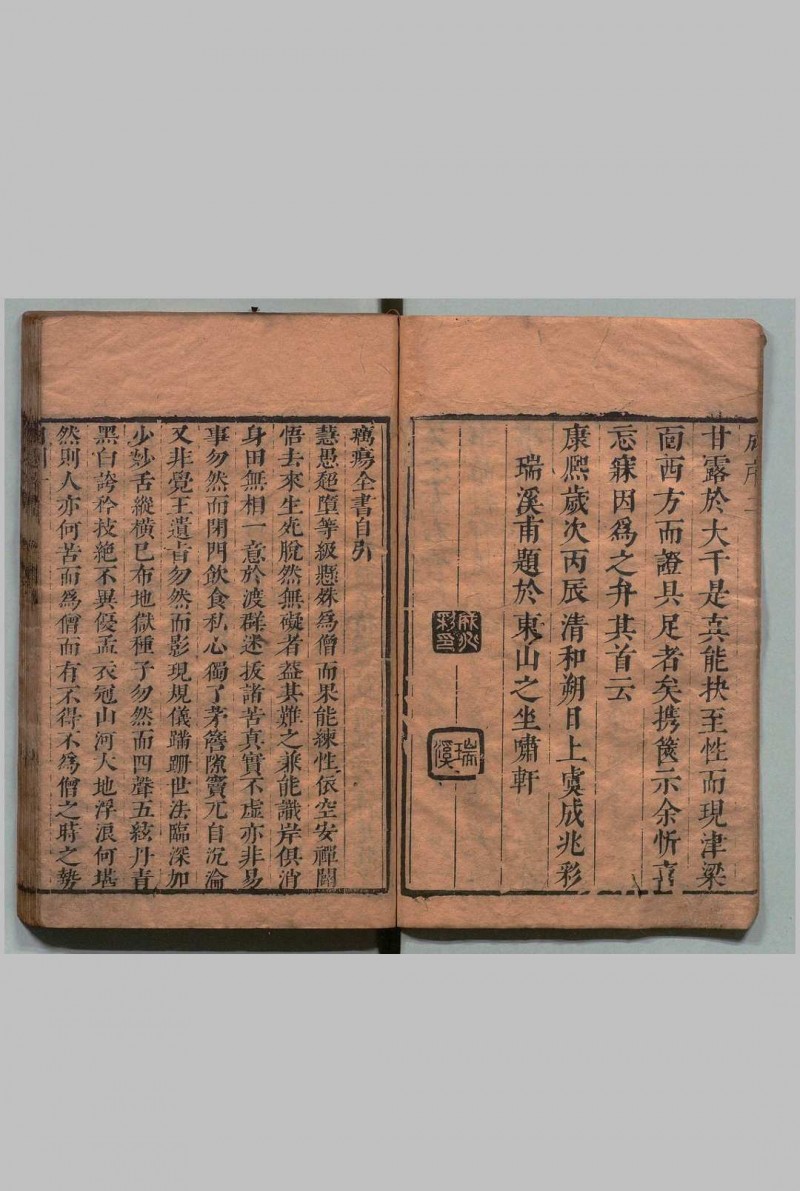 甘露於大千是真能抉至性而現津梁
面西方而證具足者矣携篋示余忻喜
忘寐因爲之弁其首云
康熙歲次丙辰清和朔日上虞成兆彩
瑞溪甫題於東山之坐嘯軒
瑞溪
癘瘍全書自引
慧愚超墮等級懸殊爲僧而果能練性依空安禪闢
悟去來生死脫然無礙者益其難之兼能識岸俱消
身田無相一意於渡群迷拔諸苦真實不虛亦非易
事勿然而閉門飲食私心獨了茅簷隙竇兀自沉淪
又非覺王遺旨勿然而影現規儀蹣跚世法臨深加
少妙舌縱橫已布地獄種子勿然而四聲五絃丹青
黑白誇矜技絶不異優孟衣冠山河大地浮浪何堪
然則人亦何苦而爲僧而有不得不爲僧之時之勢